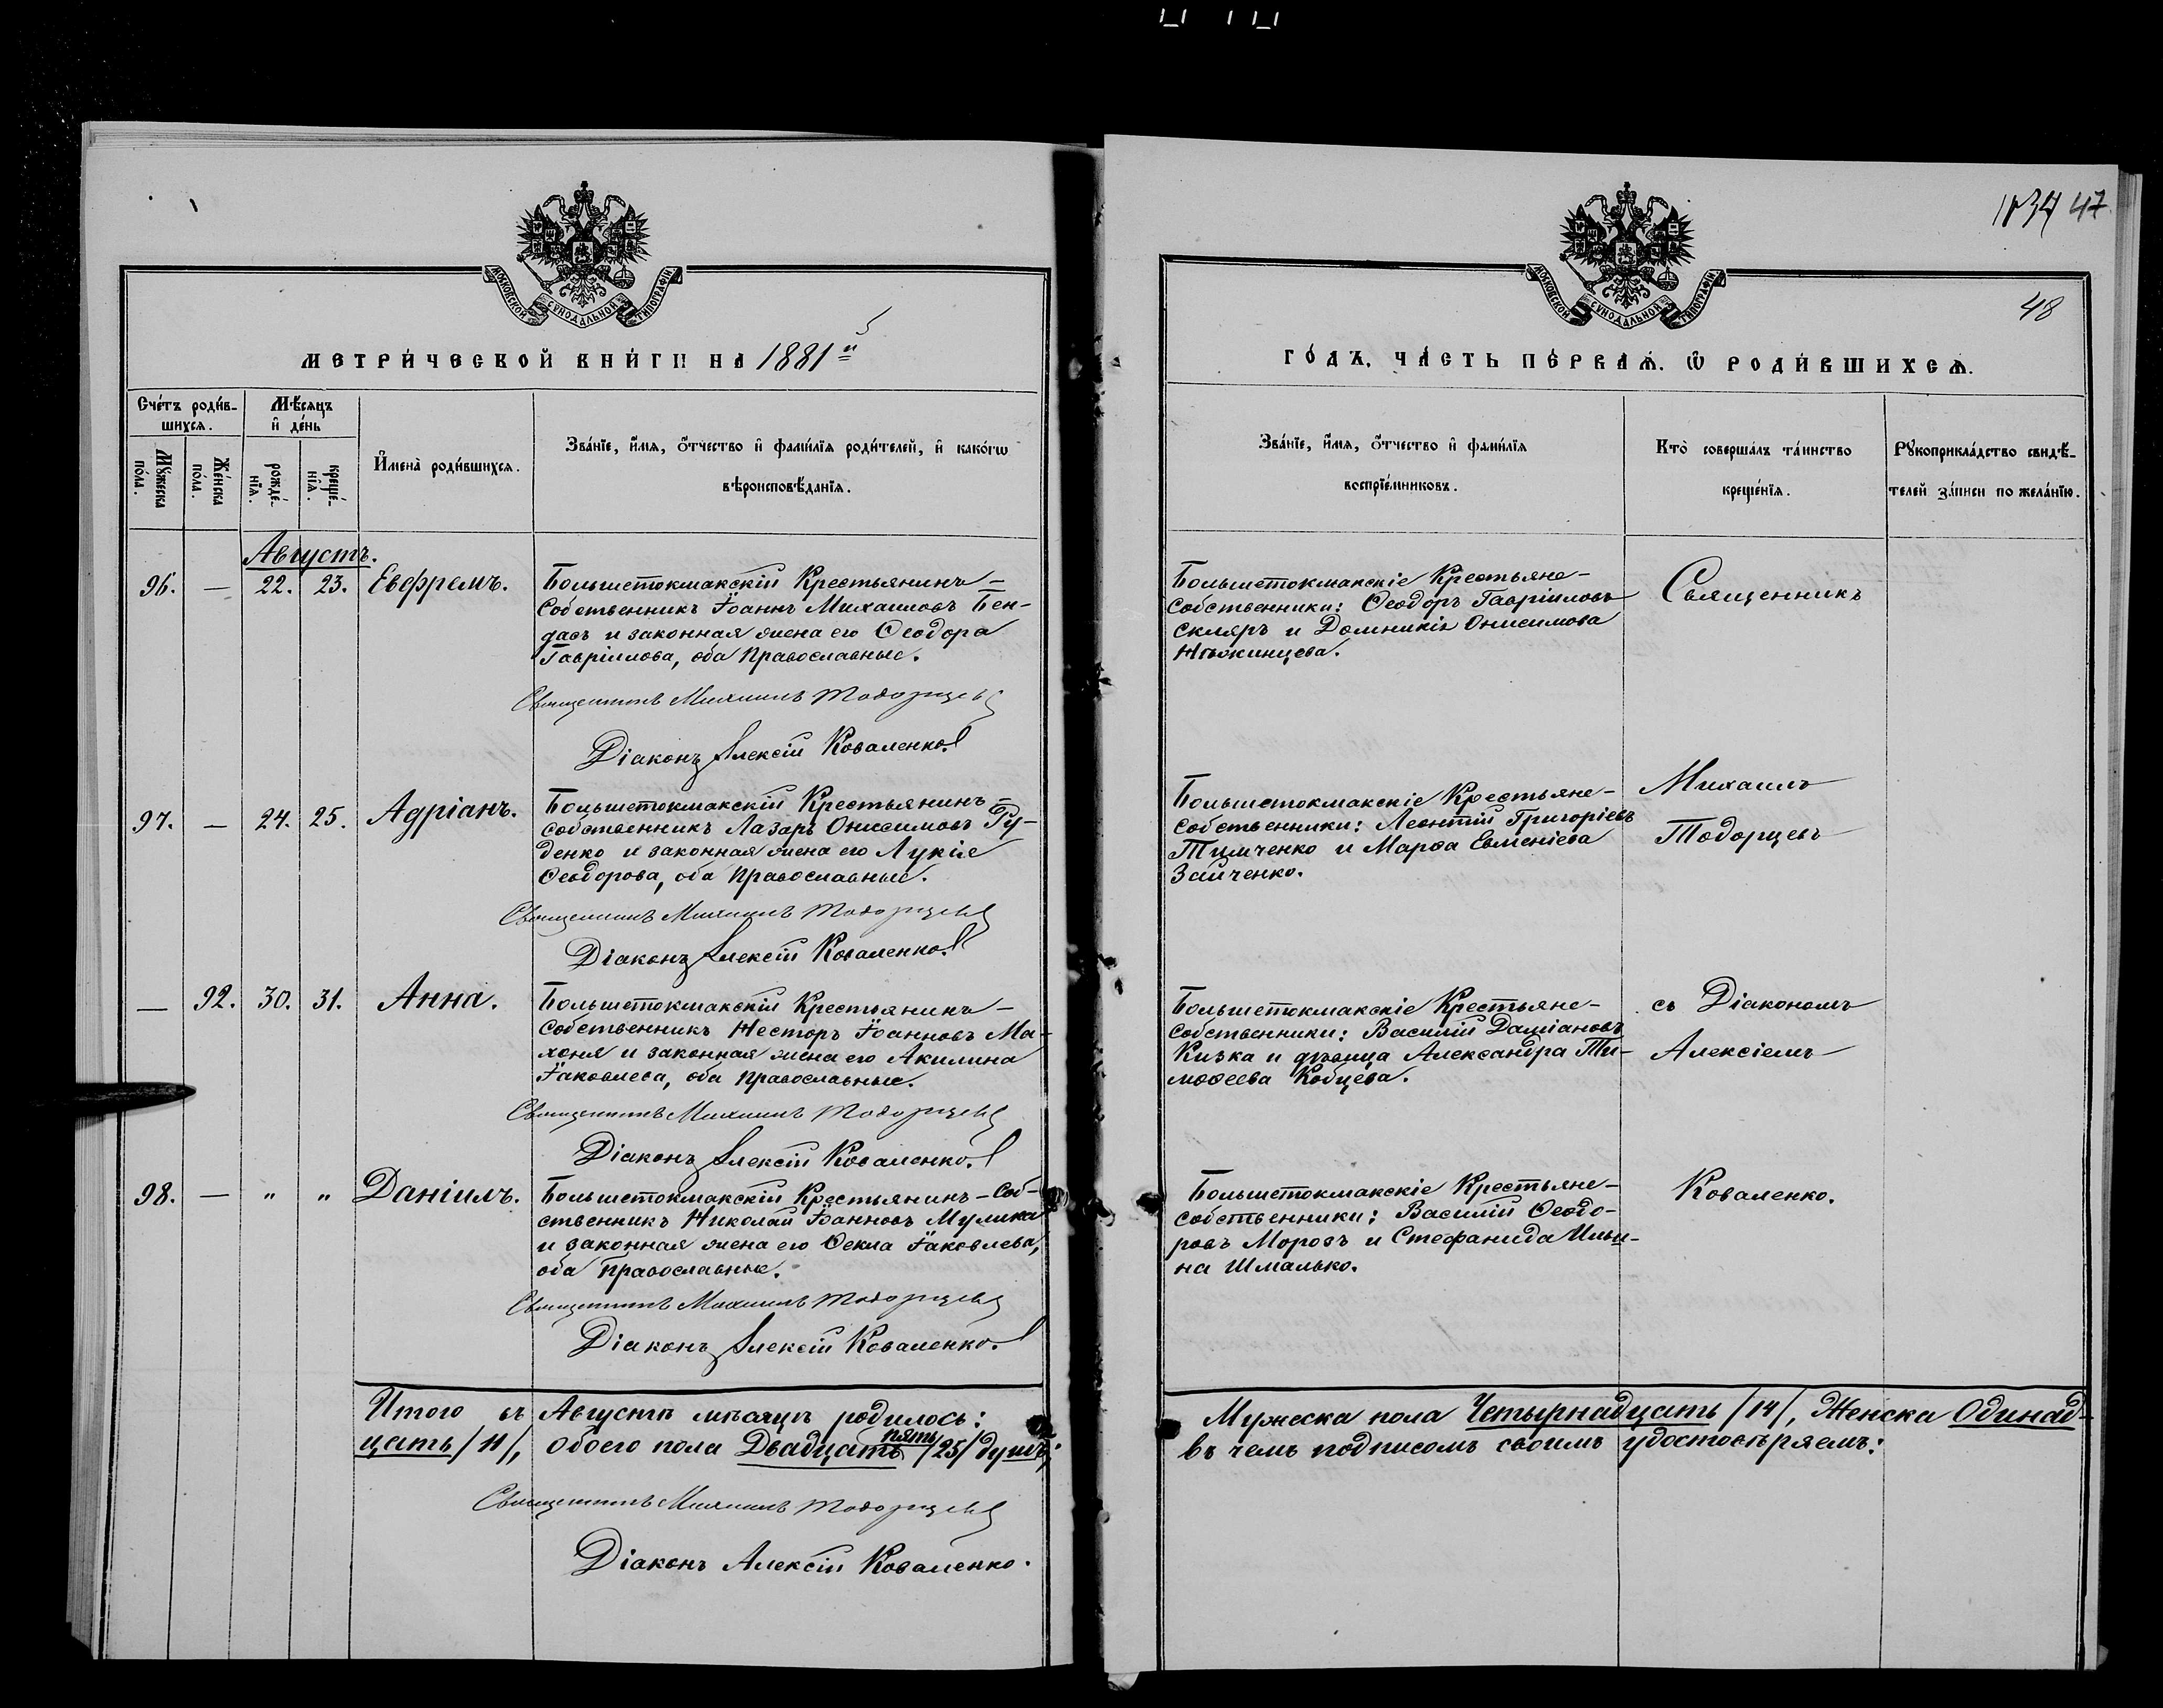 1834 47
48
МОСКОВСКОЙ СѴНОДАЛЬНОЙ ТИПОГРАФІИ
МОСКОВСКОЙ СѴНОДАЛЬНОЙ ТИПОГРАФІИ
МЕТРИ́ЧЕСКОЙ КНИ́ГИ НА 1881й
ГО́ДЪ. ЧА́СТЬ ПЕ́РВАѦ. Ѡ РОДИ́ВШИХСѦ.
Сче́тъ роди́в-
шихсѧ.
Мѣ́сѧцъ
и҆ де́нь
Мꙋ́жеска по́ла.
Же́нска по́ла.
рожде́-
нїѧ.
креще́-
нїѧ.
И҆мена̀ роди́вшихсѧ.
Зва́нїе, и҆́мѧ, ѻ҆́тчество и҆ фами́лїѧ роди́телей, и҆ како́гѡ
вѣроисповѣ́данїѧ.
Зва́нїе, и҆́мѧ, ѻ҆́тчество и҆ фами́лїѧ
воспрїе́мниковъ.
Кто̀ соверша́лъ та́инство
креще́нїѧ.
Рꙋкоприкла́дство свидѣ́-
телей за́писи по жела́нїю.
Августъ.
96. — 22. 23. Евфремъ.
Большетокмакскій Крестьянинъ-
Собственникъ Іоаннъ Михаиловъ Бен-
дасъ и законная жена его Ѳеодора
Гавріилова, оба Православные.
Священникъ Михаилъ Тодорцевъ
Діаконъ Алексій Коваленко.
Большетокмакскіе Крестьяне-
собственники: Ѳеодоръ Гавріиловъ
Скляръ и Домникія Онисимова
Нѣжинцева.
Священникъ
97. — 24. 25. Адріанъ.
Большетокмакскій Крестьянинъ-
собственникъ Лазарь Онисимовъ Ру-
денко и законная жена его Лукія
Ѳеодорова, оба Православные.
Священникъ Михаилъ Тодорцевъ
Діаконъ Алексій Коваленко.
Большетокмакскіе Крестьяне-
собственники: Леонтій Григоріевъ
Тимченко и Марѳа Евменіева
Зайченко.
Михаилъ
Тодорцевъ
— 92. 30. 31. Анна.
Большетокмакскій Крестьянинъ-
собственникъ Несторъ Іоанновъ Ма-
хоня и законная жена его Акилина
Іаковлева, оба Православные.
Священникъ Михаилъ Тодорцевъ
Діаконъ Алексій Коваленко.
Большетокмакскіе Крестьяне-
собственники: Василій Даміановъ
Кизка и дѣвица Александра Ти-
моѳеева Кобцева.
съ Діакономъ
Алексіемъ
98. — " " Даніилъ.
Большетокмакскій Крестьянинъ-Соб-
ственникъ Николай Іоанновъ Мулика
и законная жена его Ѳекла Іаковлева,
оба Православные.
Священникъ Михаилъ Тодорцевъ
Діаконъ Алексій Коваленко.
Большетокмакскіе Крестьяне-
собственники: Василій Ѳеодо-
ровъ Морозъ и Стефанида Ильи-
на Шмалько.
Коваленко.
Итого въ Августѣ мѣсяцѣ родилось:
Мужеска пола Четырнадцать /14/, Женска Одинад-
цать /11/, обоего пола Двадцать пять /25/ душъ;
въ чемъ подписомъ своимъ удостовѣряемъ:
Священникъ Михаилъ Тодорцевъ
Діаконъ Алексій Коваленко.